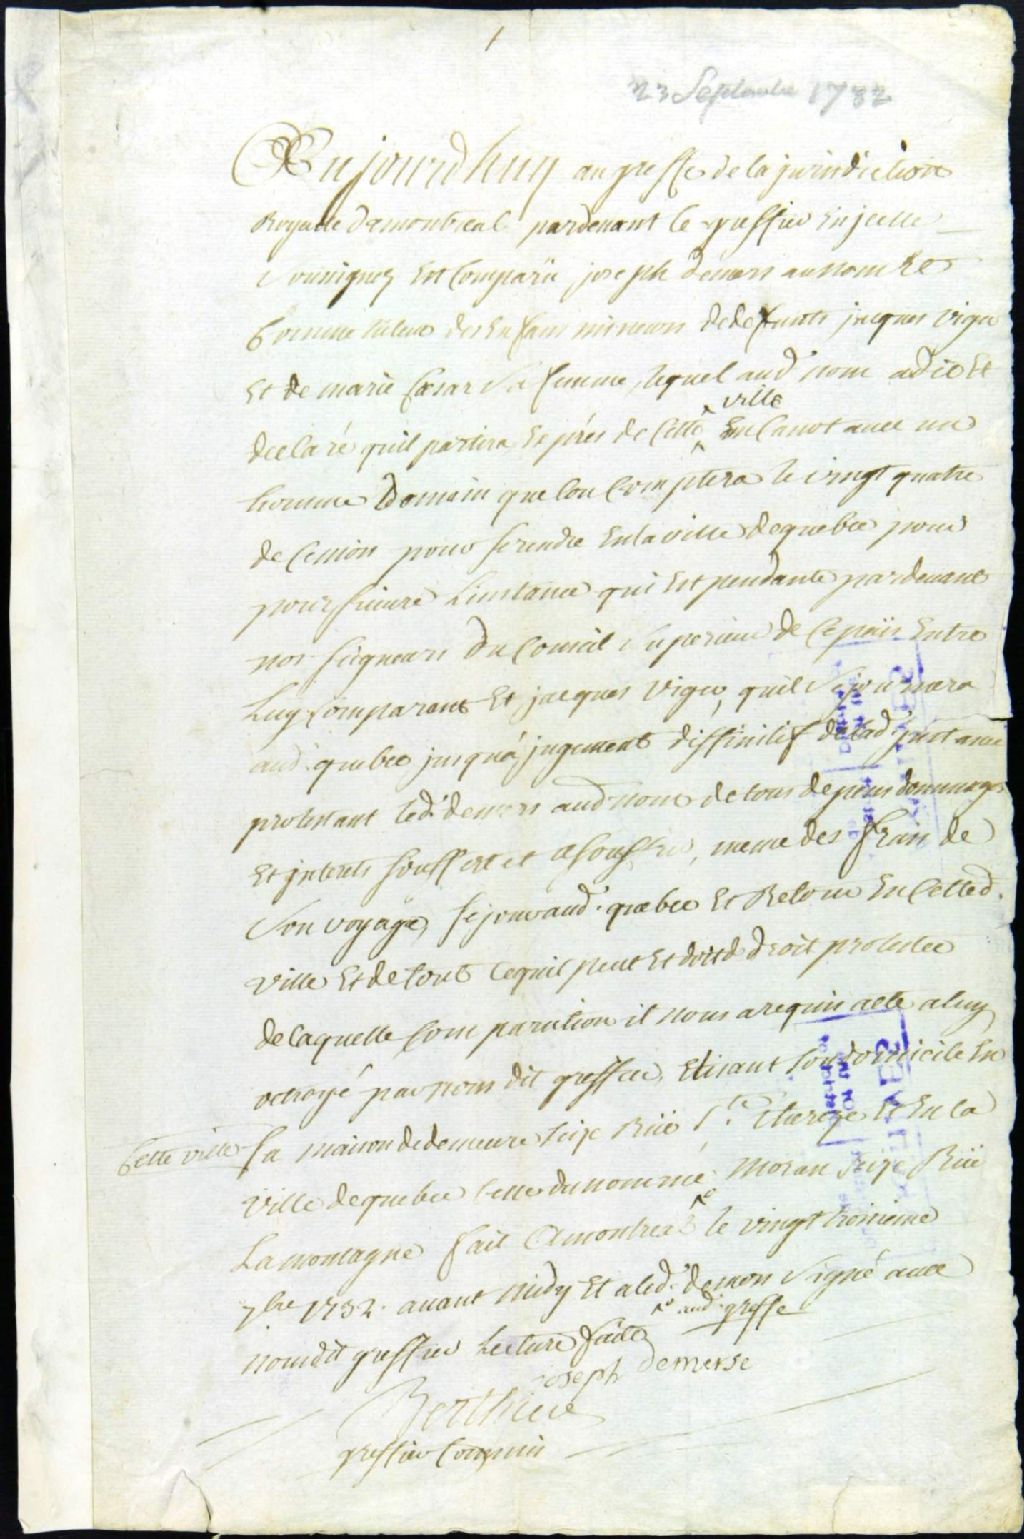 1
23 Septembre 1732
Aujourdhuy au greffe de la jurisdiction
Royalle de montreal pardevant le greffier en jcelle
Soussigné Est Comparu joseph demers au nom Et
Comme tuteur des Enfans mineurs de defunts jacques viger
Et de marie Cesar Sa femme, lequel aud.' nom a dit Et
declaré quil partira Exprés de Cette ville En Canot avec un
homme Demain que lon Comptera le vingt quatre
de Ce mois pour se rendre En la ville de quebec pour
poursuivre Linstance qui Est pendante pardevant
nos seigneurs du Conseil Superieur de Ce païs Entre
Luy Comparant Et jacques Viger, quil sejournera
aud. quebec jusqu'a jugement diffinitif de lad. jnstance
protestant led. demers aud. nom de tous depens dommages
Et jnterets souffert et a souffrir, meme des frais de
Son voyage, sejour aud. quebec Et Retour En Cetted.
ville Et de tout Ce quil peut Et doit de droit protester
de laquelle Comparution il nous a requis acte a luy
octroyé par nous dit greffier, Elisant son domicile En
Cette ville Sa maison de demeure Seize Rüe Ste. thereze Et En la
ville de quebec Celle du nommé Moran Seize Rüe
La montagne fait a montreal le vingt troisieme
7bre 1732. avant midy Et a led. demers Signé avec
aud. greffe
nousdit greffier Lecture faite
joseph demerse
Berthier
greffier Commis